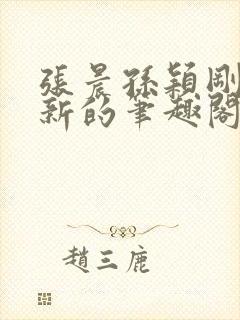 張晨孫穎剛
新的筆趣閣
趙三鹿